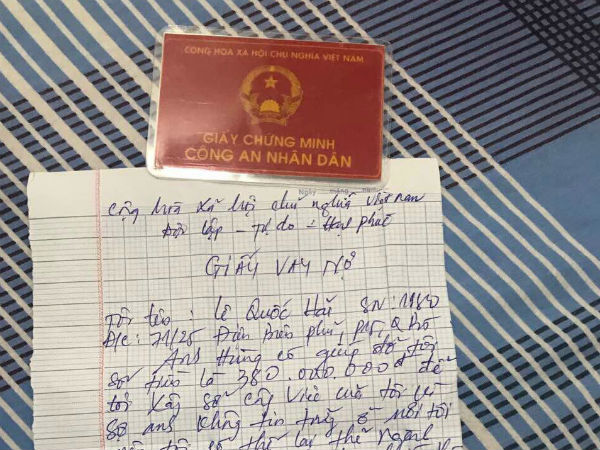 CỘNG HÒA XÃ HỘI CHỦ NGHĨA VIỆT NAM
GIẤY CHỨNG MINH
CÔNG AN NHÂN DÂN
Ngày
Cộng hòa xã hội chủ nghĩa Việt Nam
Độc lập - Tự do - Hạnh phúc
GIẤY VAY NỢ
Tôi tên : Lê Quốc Hải SN: 1980
Đ/c: 71/25 Điện Biên phủ,
Anh Hùng có giúp đỡ tôi
số tiền là 380.000.000đ để
tôi công việc tôi
sợ anh không tin tưởng ở nơi tôi
tôi có thể lại thẻ ngành